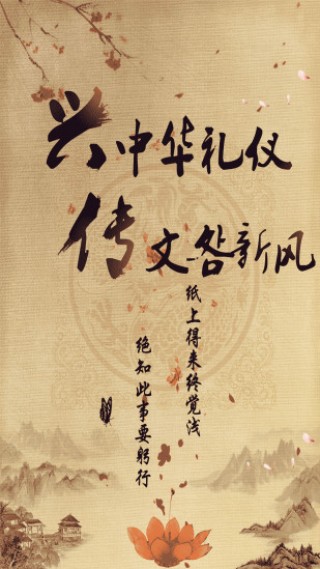 兴中华礼仪
传文 新风
纸上得来终觉浅
绝知此事要躬行